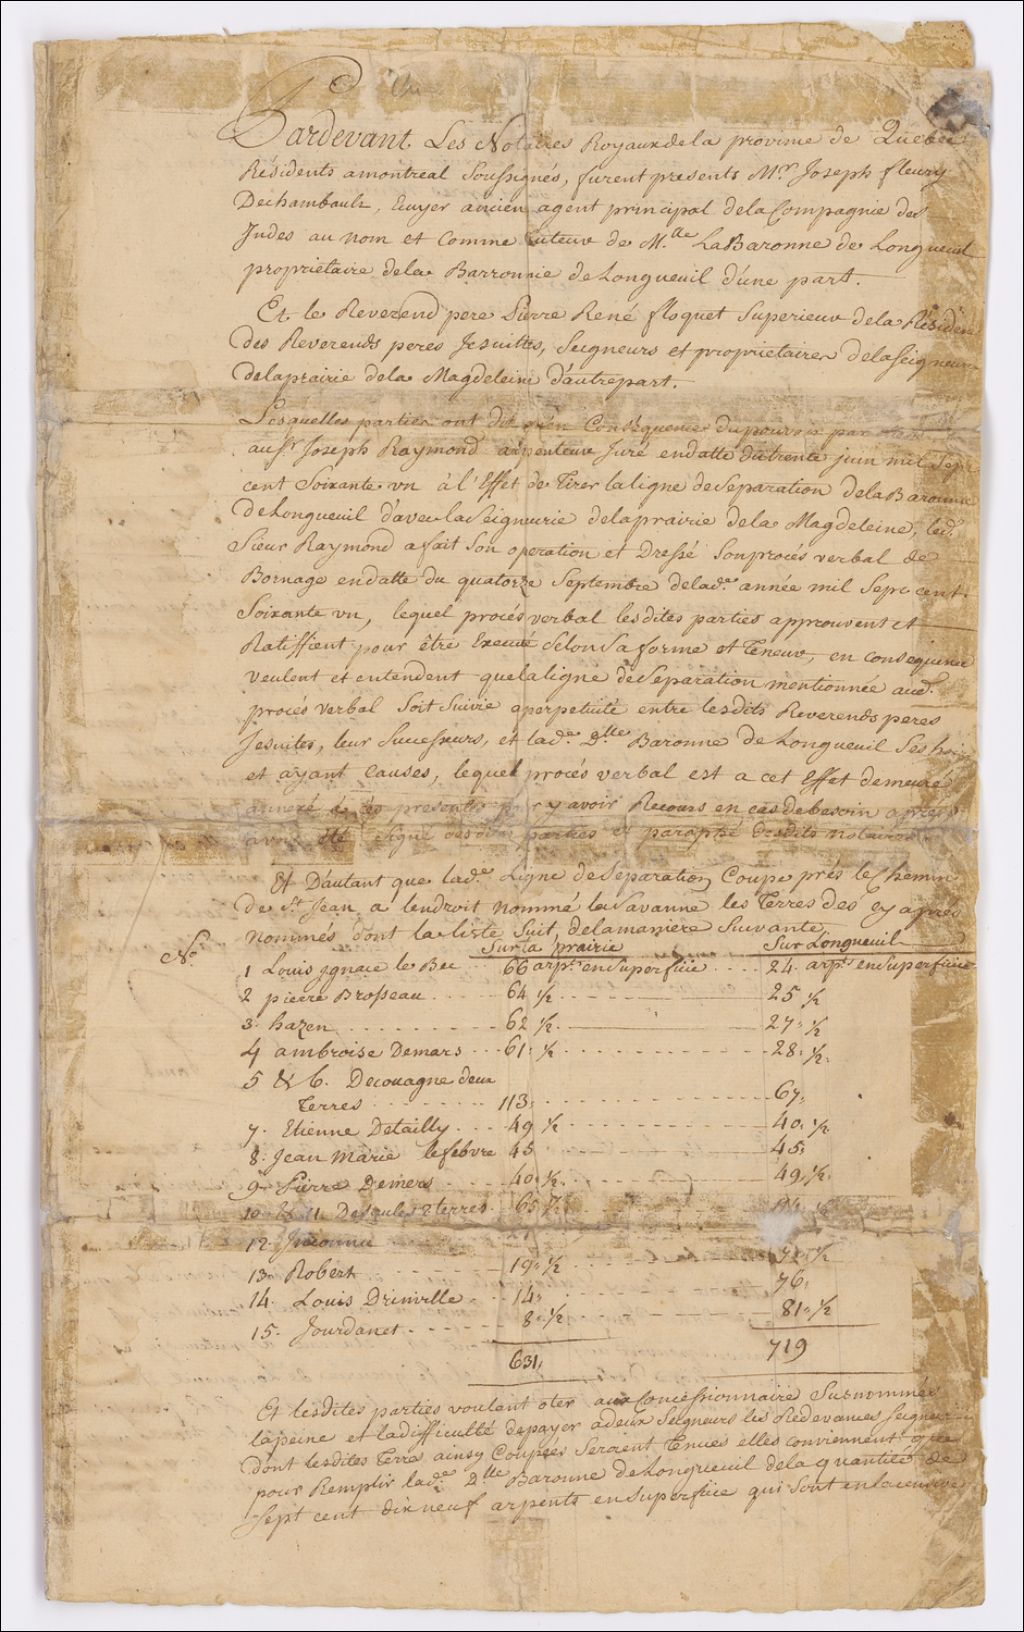 Pardevant Les Notaires Royaux de la province de Québec
Résidents a montreal Soussignés, furent presents Mr. Joseph fleury
Dechambault, Ecuyer ancien agent principal dela Compagnie des
Indes au nom et Comme tuteur de M.lle LaBaronne de Longueuil
propriétaire dela Barronnie de Longueuil d'une part.
Et le Reverend pere Pierre René floquet Superieur dela Résiden
des Reverends peres Jesuittes, Seigneurs et propriétaires delaseigneurie
delaprairie dela Magdeleine d'autrepart.
Lesquelles parties ont dit qu'en Conséquence du pouvoir par
au Sr. Joseph Raymond arpenteur Juré endatte du trente juin mil Sept
cent Soixante un à l'Effet de Tirer la ligne deSeparation delaBaronnie
deLongueuil d'avec laSeigneurie delaprairie dela Magdeleine, led.
Sieur Raymond afait Son operation et Dressé Sonprocés verbal de
Bornage endatte du quatorze Septembre delade. année mil Sept cent
Soixante un, lequel procésverbal lesdites parties approuvent et
Ratiffient pour être Executé SelonSaforme et Teneur, en consequence
veulent et entendent quelaligne deSeparation mentionnée aud.
procés verbal Soit Suivie aperpetuité entre lesdits Reverends peres
Jesuites, leur Successeurs, et lade. Dlle Baronne de Longueuil Ses hoirs
et ayant Causes, lequel procés verbal est a cet Effet demeuré
annexé à ces presentes pour y avoir Recours en cas debesoin apres
avoir été Signé desdites parties et paraphé desdits notaires.
Et D'autant que lade. Ligne deSeparation Coupe prés le Chemin
de St. Jean a lendroit nommé la Savanne les Terres des cy aprés
nommés dont la liste Suit delamaniere Suivante
Sur la prairie Sur Longueuil
No
1 Louis Ignace le Bec 66 arpts. enSuperficie 24 arpts. enSuperficie
2 pierre Brosseau 64 1/2 25 1/2
3. hazen 62 1/2 27 1/2
4 ambroise Demars 61 1/2 28 1/2
5 & 6. Decouagne deux
Terres 113 67
7. Etienne Detailly 49 1/2 40 1/2
8. Jean Marie lefebvre 45 45
9 Pierre Demers 40 1/2 49 1/2
10 & 11 2 terres 65 1/2
12. Inconnu 1/2
13. Robert 19 1/2
14. Louis Drinville 14 76
15. Jourdanet 8 1/2 81 1/2
631 719
Et lesdites parties voulent oter aux Concessionnaires Susnommés
lapeine et ladifficulté depayer adeux Seigneurs les Redevances Seigneur
dont lesdites Terres ainsy Coupées Seroient Tenues elles conviennent que
pour Remplir lade. Dlle Baronne deLongueuil delaquantité de
Sept cent dixneuf arpents enSuperficie qui Sont enlacensive